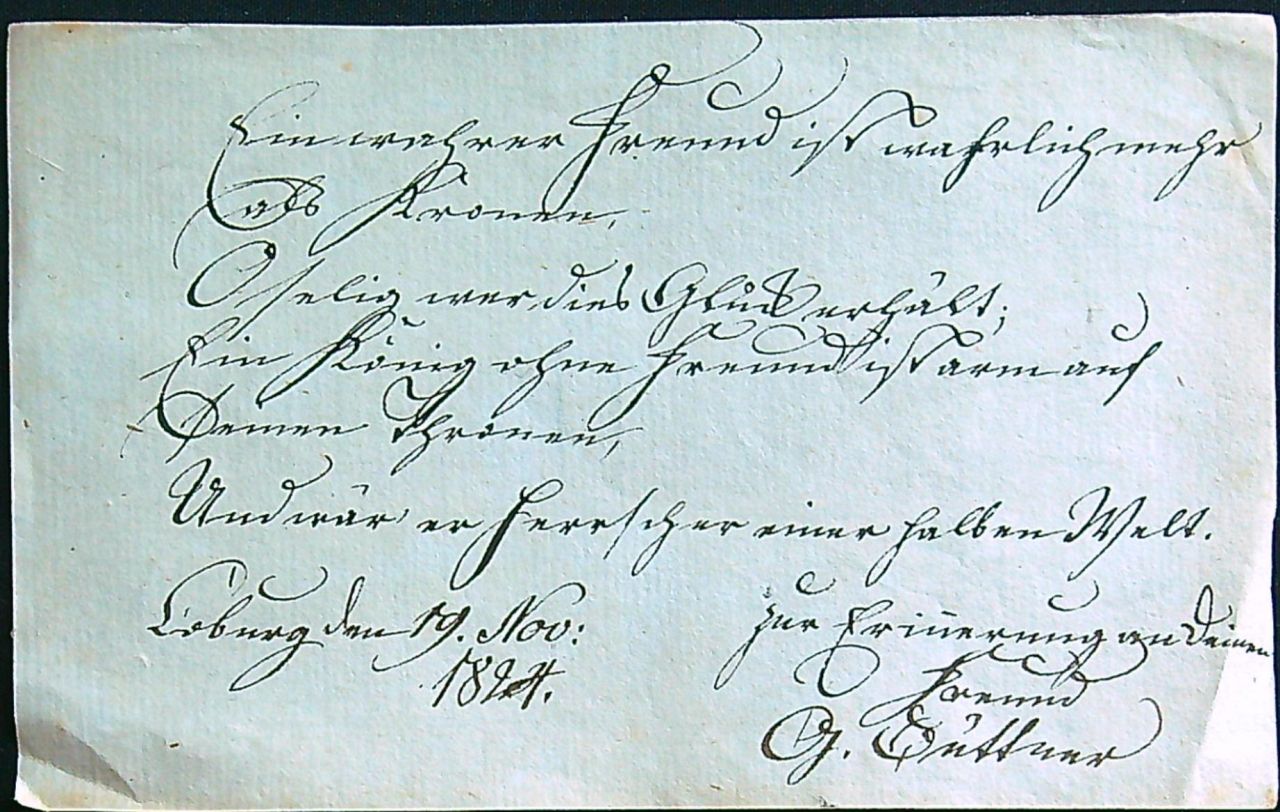 Ein wahrer Freund ist wahrlich mehr
als Kronen,
O selig wer dies Glück erhält;
Ein König ohne Freund ist arm auf
Seinen Thronen,
Und wär' er Herrscher einer halben Welt.
Coburg den 19. Nov:
1824.
Zur Erinnerung an Deinen
Freund
G. Büttner